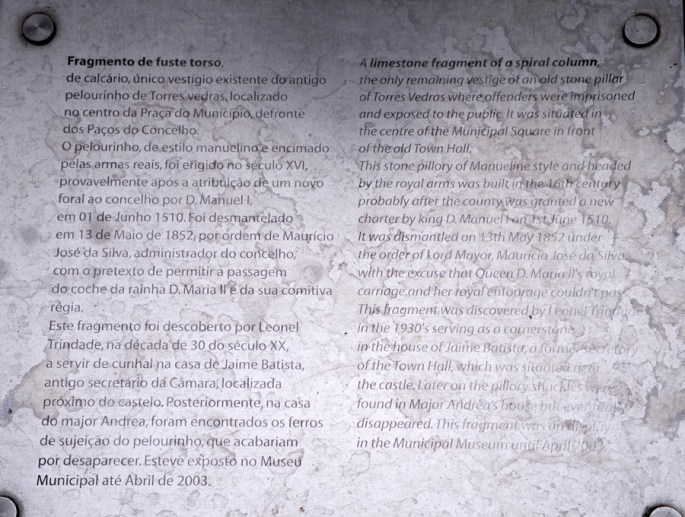 Fragmento de fuste torso,
de calcário, único vestígio existente do antigo
pelourinho de Torres vedras, localizado
no centro da Praça do Município, defronte
dos Paços do Concelho.
O pelourinho, de estilo manuelino e encimado
pelas armas reais, foi erigido no século XVI,
provavelmente após a atribuição de um novo
foral ao concelho por D. Manuel I,
em 01 de Junho 1510. Foi desmantelado
em 13 de Maio de 1852, por ordem de Maurício
José da Silva, administrador do concelho,
com o pretexto de permitir a passagem
do coche da rainha D. Maria II e da sua comitiva
régia.
Este fragmento foi descoberto por Leonel
Trindade, na década de 30 do século XX,
a servir de cunhal na casa de Jaime Batista,
antigo secretário da Câmara, localizada
próximo do castelo. Posteriormente, na casa
do major Andrea, foram encontrados os ferros
de sujeição do pelourinho, que acabariam
por desaparecer. Esteve exposto no Museu
Municipal até Abril de 2003.
A limestone fragment of a spiral column,
the only remaining vestige of an old stone pillar
of Torres Vedras where offenders were imprisoned
and exposed to the public. It was situated in
the centre of the Municipal Square in front
of the old Town Hall.
This stone pillory of Manueline style and headed
by the royal arms was built in the 16th century
probably after the county was granted a new
charter by king D. Manuel I on 1st June 1510.
It was dismantled on 13th May 1852 under
the order of Lord Mayor, Maurício José da Silva,
with the excuse that Queen D. Maria II's royal
carriage and her royal entourage couldn't pass.
This fragment was discovered by Leonel Trindade
in the 1930's serving as a cornerstone
in the house of Jaime Batista, a former secretary
of the Town Hall, which was situated near
the castle. Later on the pillory shackles were
found in Major Andrea's house but eventually
disappeared. This fragment was on display
in the Municipal Museum until April 2003.